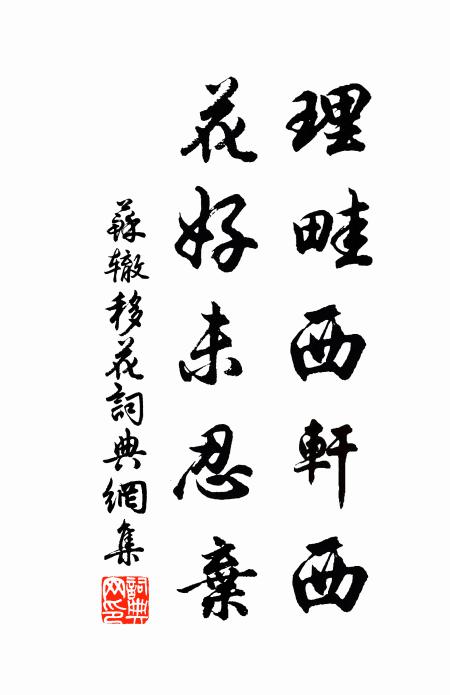 理畦西軒西
花好未忍棄
蘇辙移花詞典網集
詞典网印